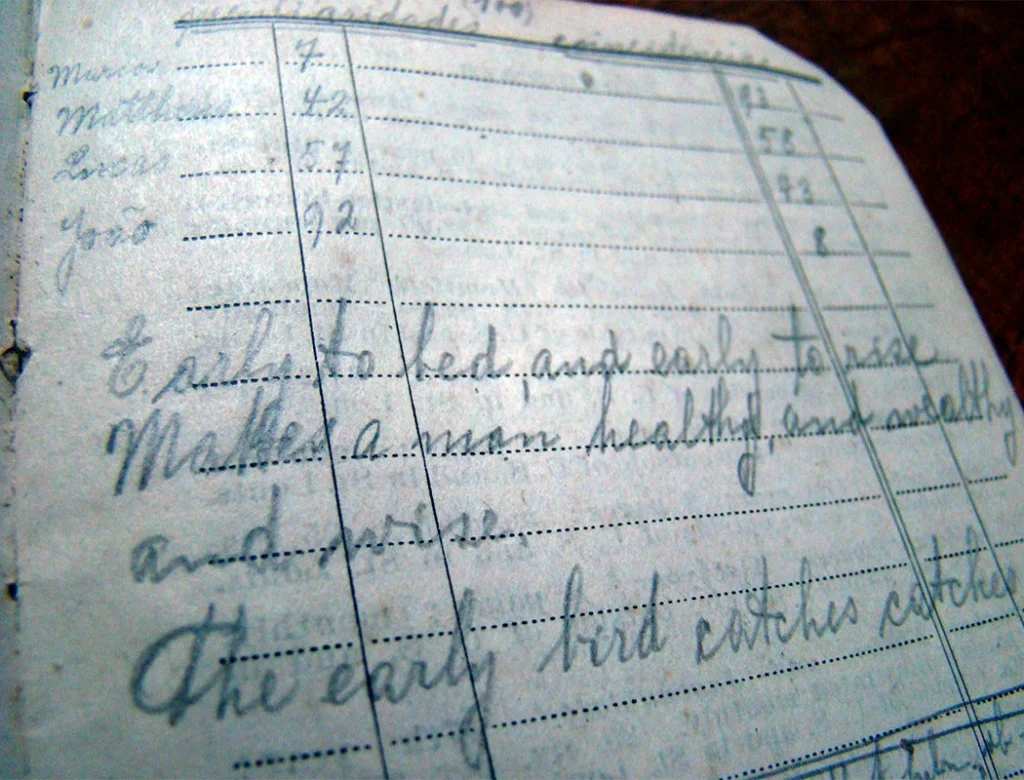 peculiaridades (100) coincidências
Marcos 7 93
Mattheus 42 58
Lucas 57 43
João 92 8
Early to bed, and early to rise
Makes a man healthy, and wealthy
and wise.
The early bird catches catches